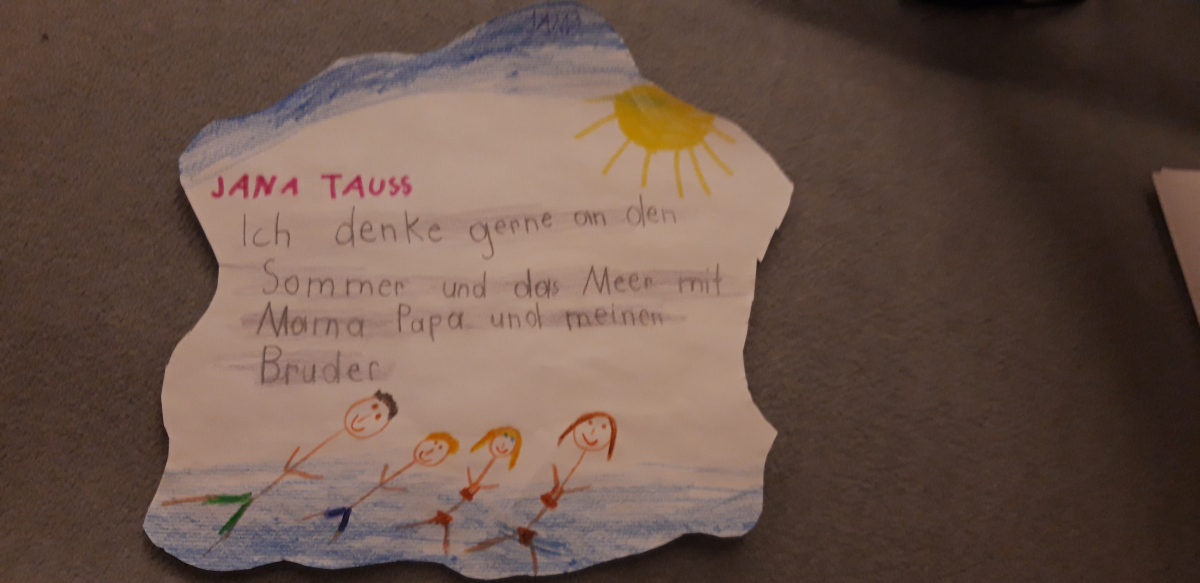 JANA
JANA TAUSS
Ich denke gerne an den
Sommer und das Meer mit
Mama Papa und meinen
Bruder